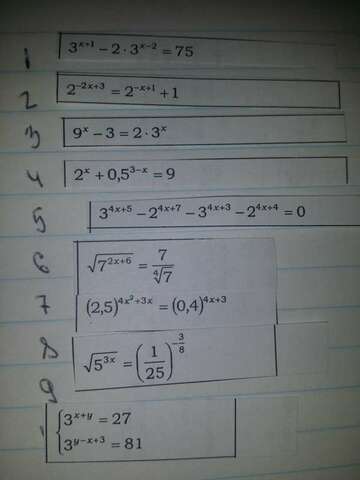 1 3^{x+1} − 2 · 3^{x−2} = 75
2 2^{−2x+3} = 2^{−x+1} + 1
3 9^x − 3 = 2 · 3^x
4 2^x + 0,5^{3−x} = 9
5 3^{4x+5} − 2^{4x+7} − 3^{4x+3} − 2^{4x+4} = 0
6 √(7^{2x+6}) = 7/∜7
7 (2,5)^{4x²+3x} = (0,4)^{4x+3}
8 √(5^{3x}) = (1/25)^{−3/8}
9 {3^{x+y} = 27
3^{y−x+3} = 81